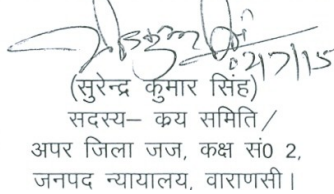 02/7/15
(सुरेन्द्र कुमार सिंह)
सदस्य– कय समिति /
अपर जिला जज, कक्ष सं0 2,
जनपद न्यायालय, वाराणसी।